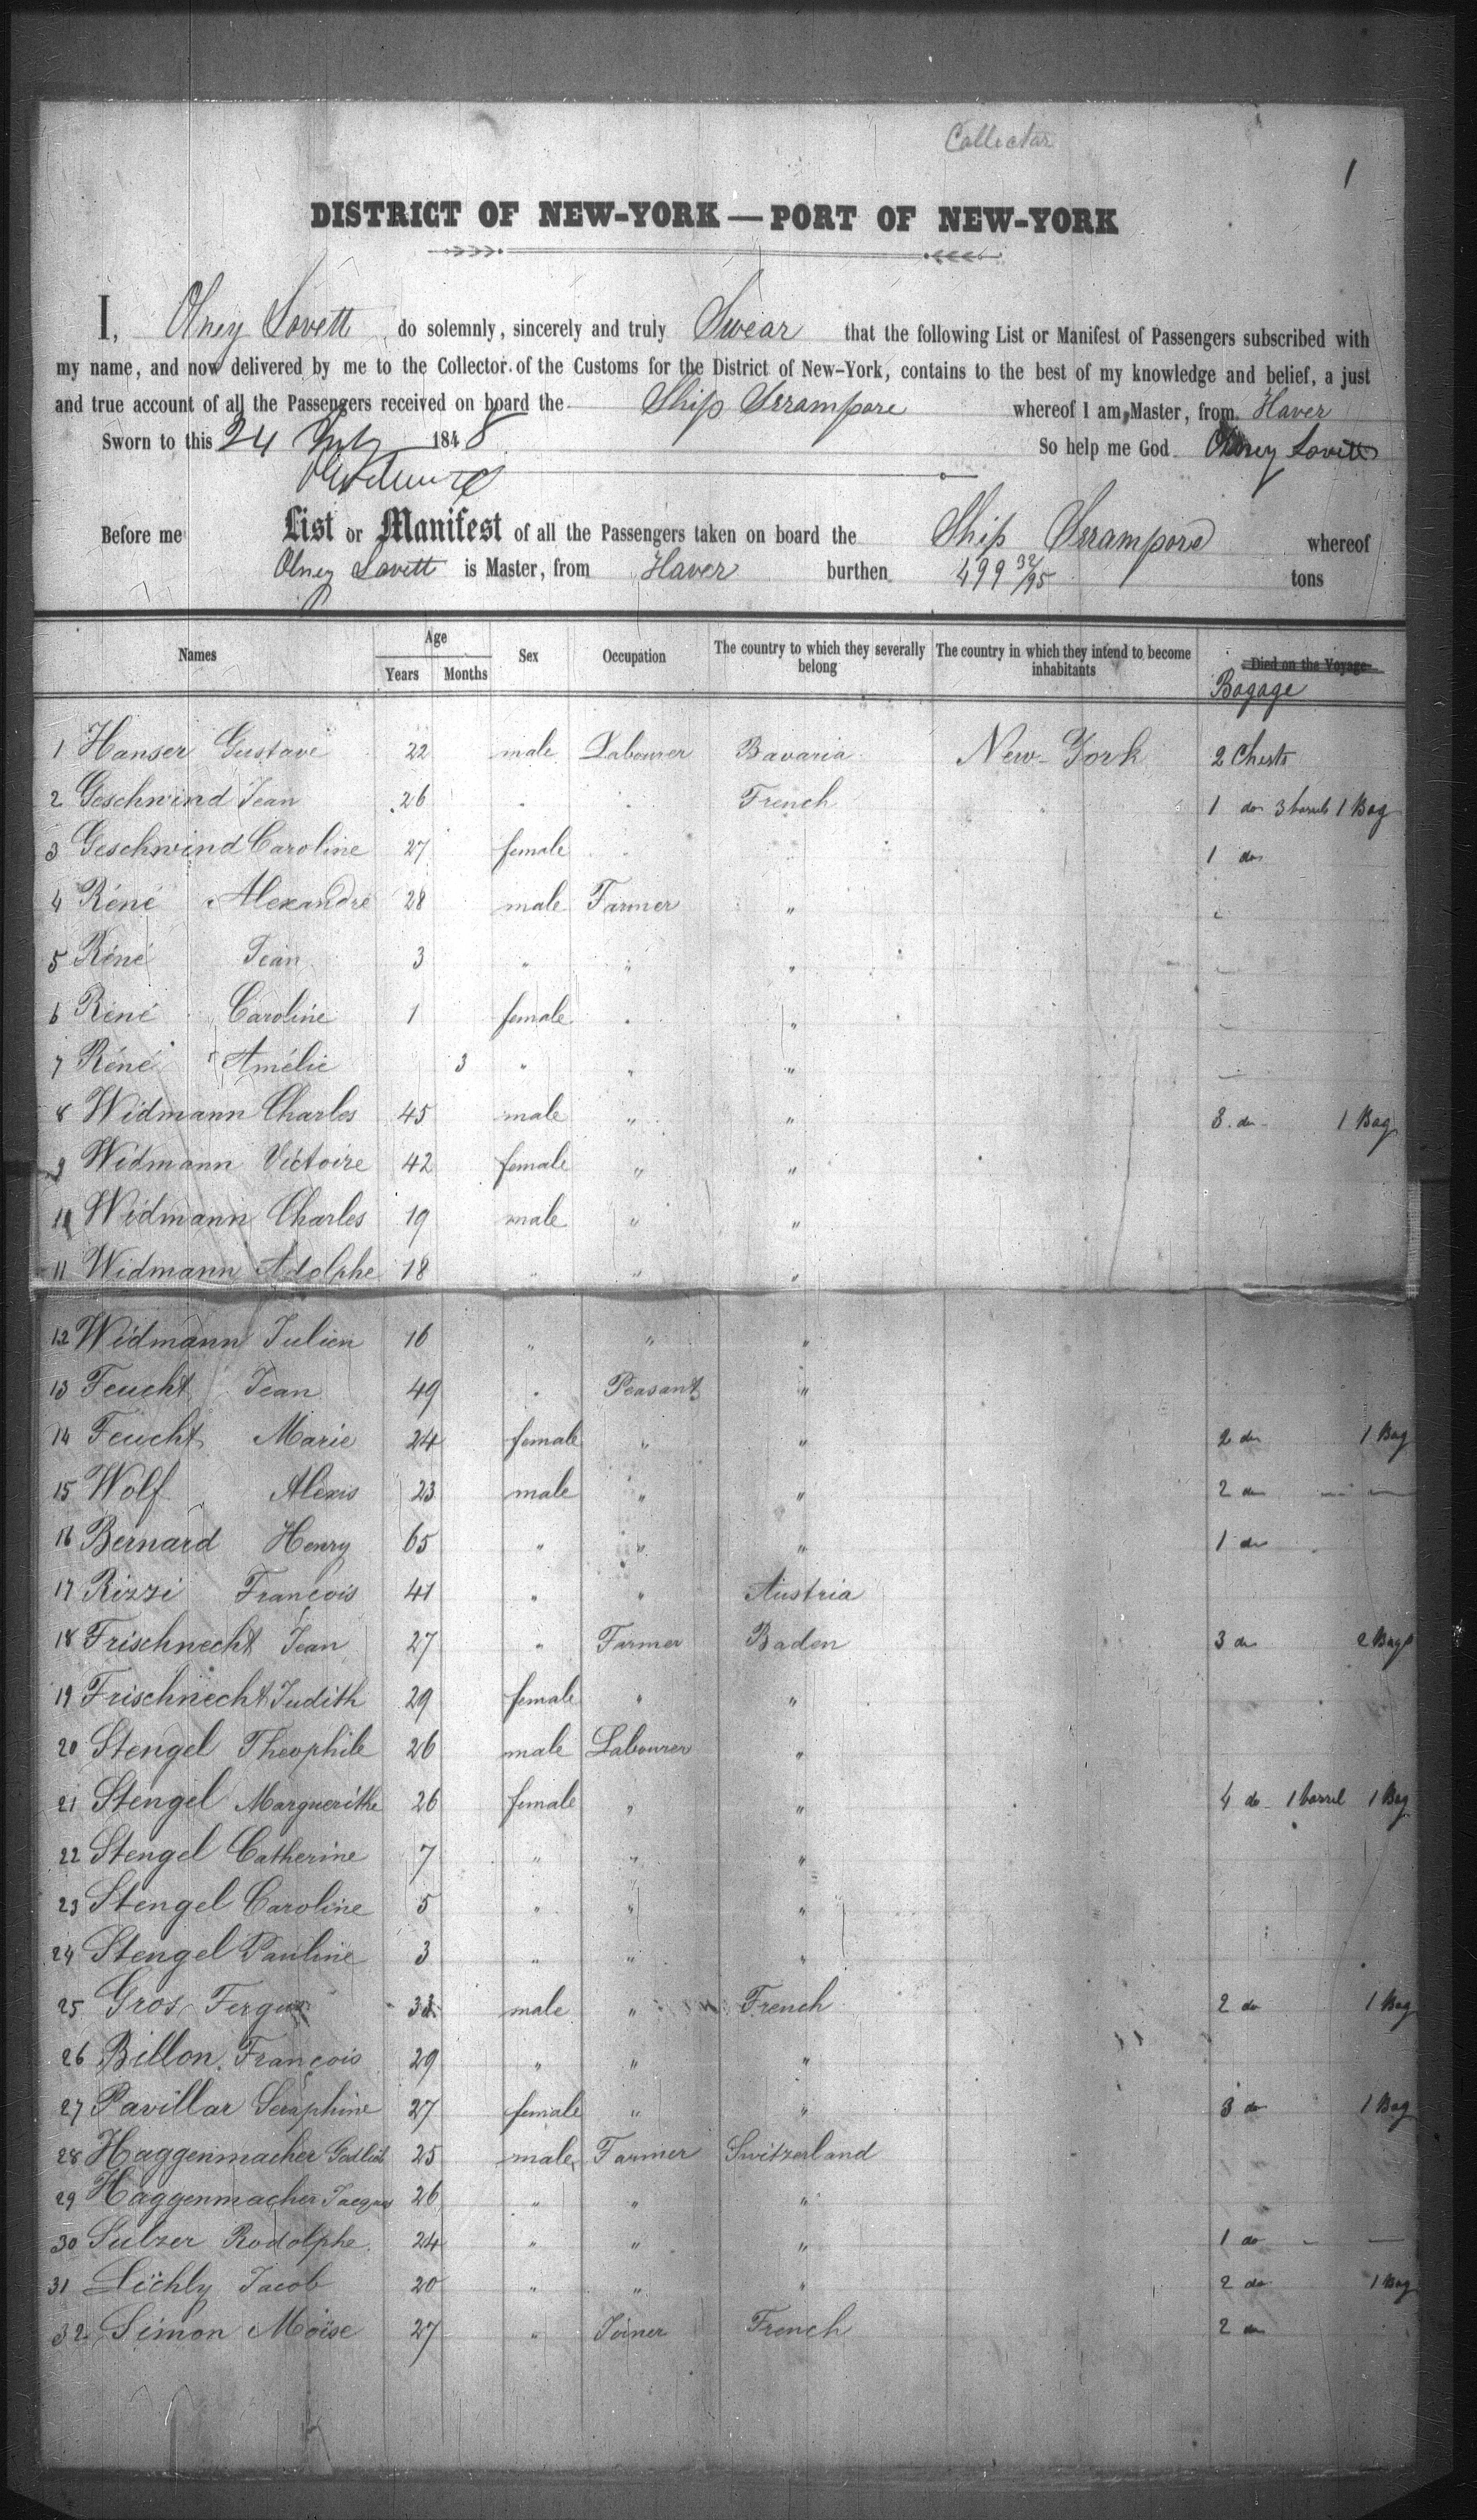 Collector
1
DISTRICT OF NEW-YORK — PORT OF NEW-YORK
I, Olney Lovett do solemnly, sincerely and truly Swear that the following List or Manifest of Passengers subscribed with
my name, and now delivered by me to the Collector of the Customs for the District of New-York, contains to the best of my knowledge and belief, a just
and true account of all the Passengers received on board the Ship Serampore whereof I am Master, from Haver
Sworn to this 24 July 1848 So help me God Olney Lovett
Before me List or Manifest of all the Passengers taken on board the Ship Serampore whereof
Olney Lovett is Master, from Haver burthen 499 32/95 tons
Names Age Sex Occupation The country to which they severally belong The country in which they intend to become inhabitants Died on the Voyage
Years Months Bagage
1 Hanser Gustave 22 male Labourer Bavaria New-York 2 Chests
2 Geschwind Jean 26 " " French 1 do 3 barrels 1 Bag
3 Geschwind Caroline 27 female " 1 do
4 Réné Alexandre 28 male Farmer "
5 Réné Jean 3 " " "
6 Réné Caroline 1 female " "
7 Réné Amélie 3 " " "
8 Widmann Charles 45 male " " 3 do 1 Bag
9 Widmann Victoire 42 female " "
10 Widmann Charles 19 male " "
11 Widmann Adolphe 18 " " "
12 Widmann Julien 16 " " "
13 Feucht Jean 49 " Peasant "
14 Feucht Marie 24 female " " 2 do 1 Bag
15 Wolf Alexis 23 male " " 2 do — —
16 Bernard Henry 65 " " " 1 do
17 Rizzi François 41 " " Austria
18 Frischnecht Jean 27 " Farmer Baden 3 do 2 Bags
19 Frischnecht Judith 29 female " "
20 Stengel Theophile 26 male Labourer "
21 Stengel Marguerithe 26 female " " 4 do 1 barrel 1 Bag
22 Stengel Catherine 7 " " "
23 Stengel Caroline 5 " " "
24 Stengel Pauline 3 " " "
25 Gros male " French 2 do 1 Bag
26 Billon François 29 " " "
27 Pavillar Seraphine 27 female " " 3 do 1 Bag
28 Haggenmacher Godlieb 25 male Farmer Switzerland
29 Haggenmacher Jacques 26 " " "
30 Sulzer Rodolphe 24 " " " 1 do - —
31 Jacob 20 " " " 2 do 1 Bag
32 Simon Moïse 27 " Joiner French 2 do